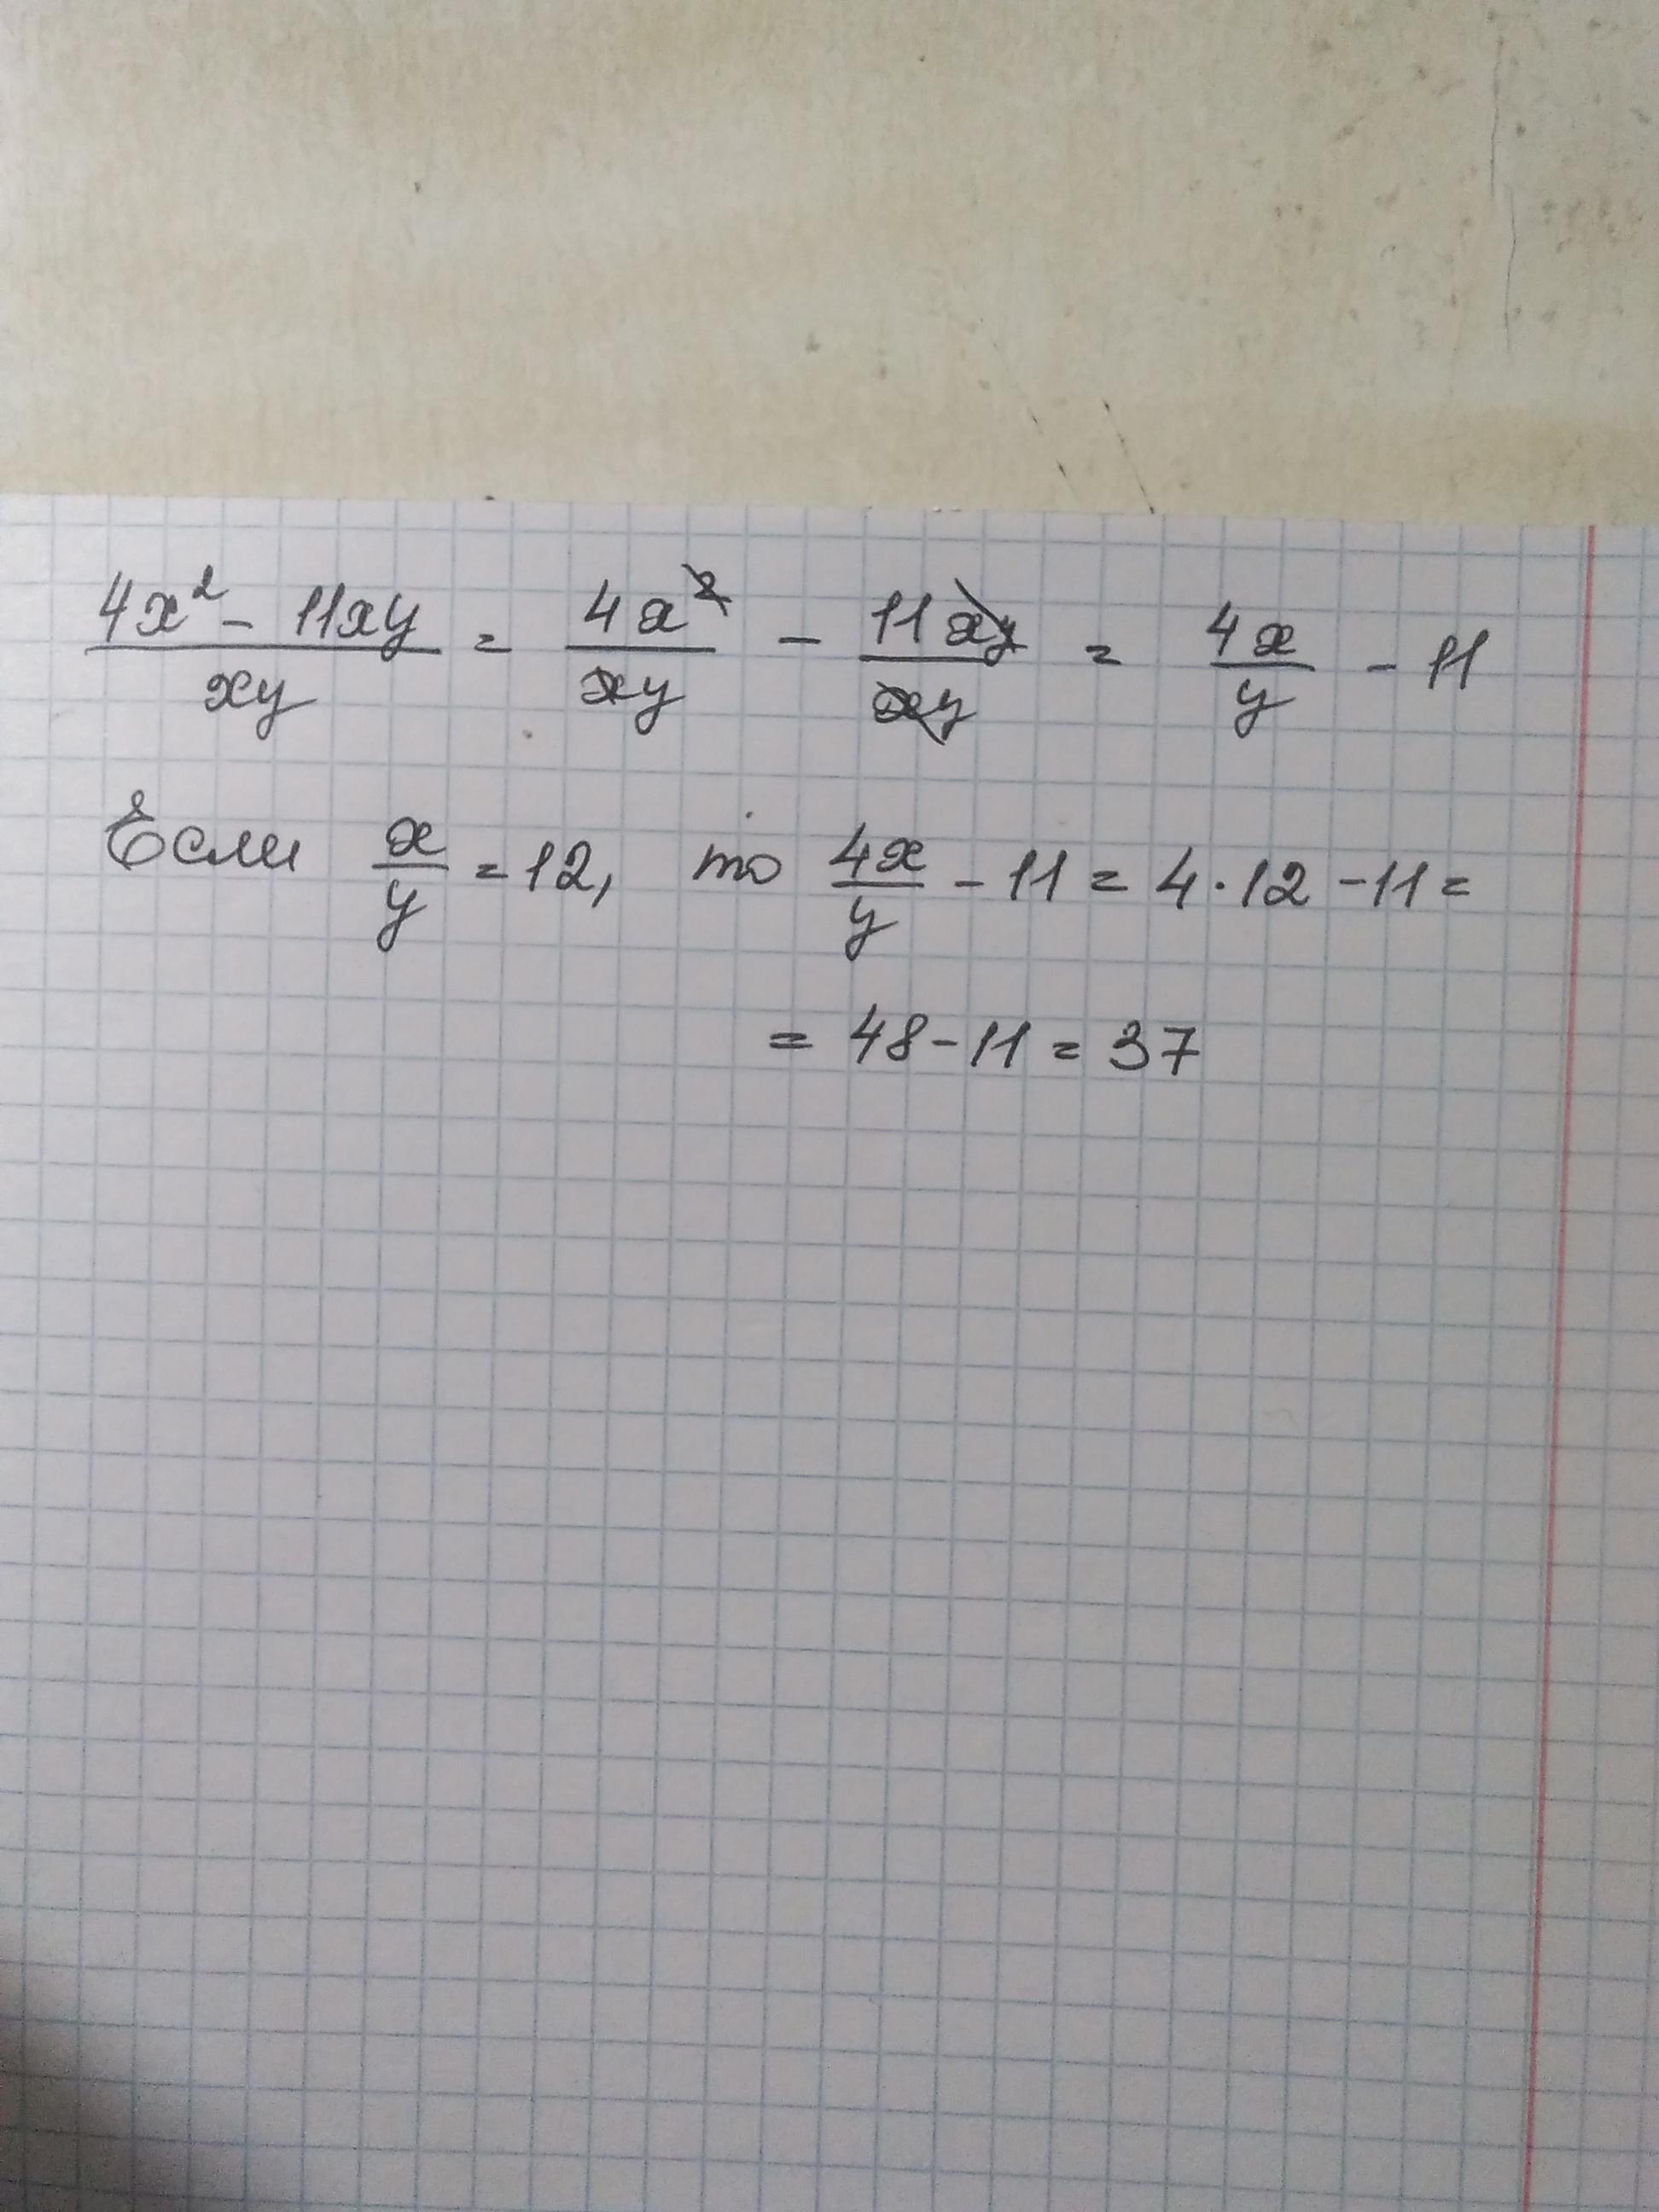 (4x² - 11xy)/(xy) = 4x²/(xy) - 11xy/(xy) = 4x/y - 11
Если x/y = 12, то 4x/y - 11 = 4·12 - 11 =
= 48 - 11 = 37